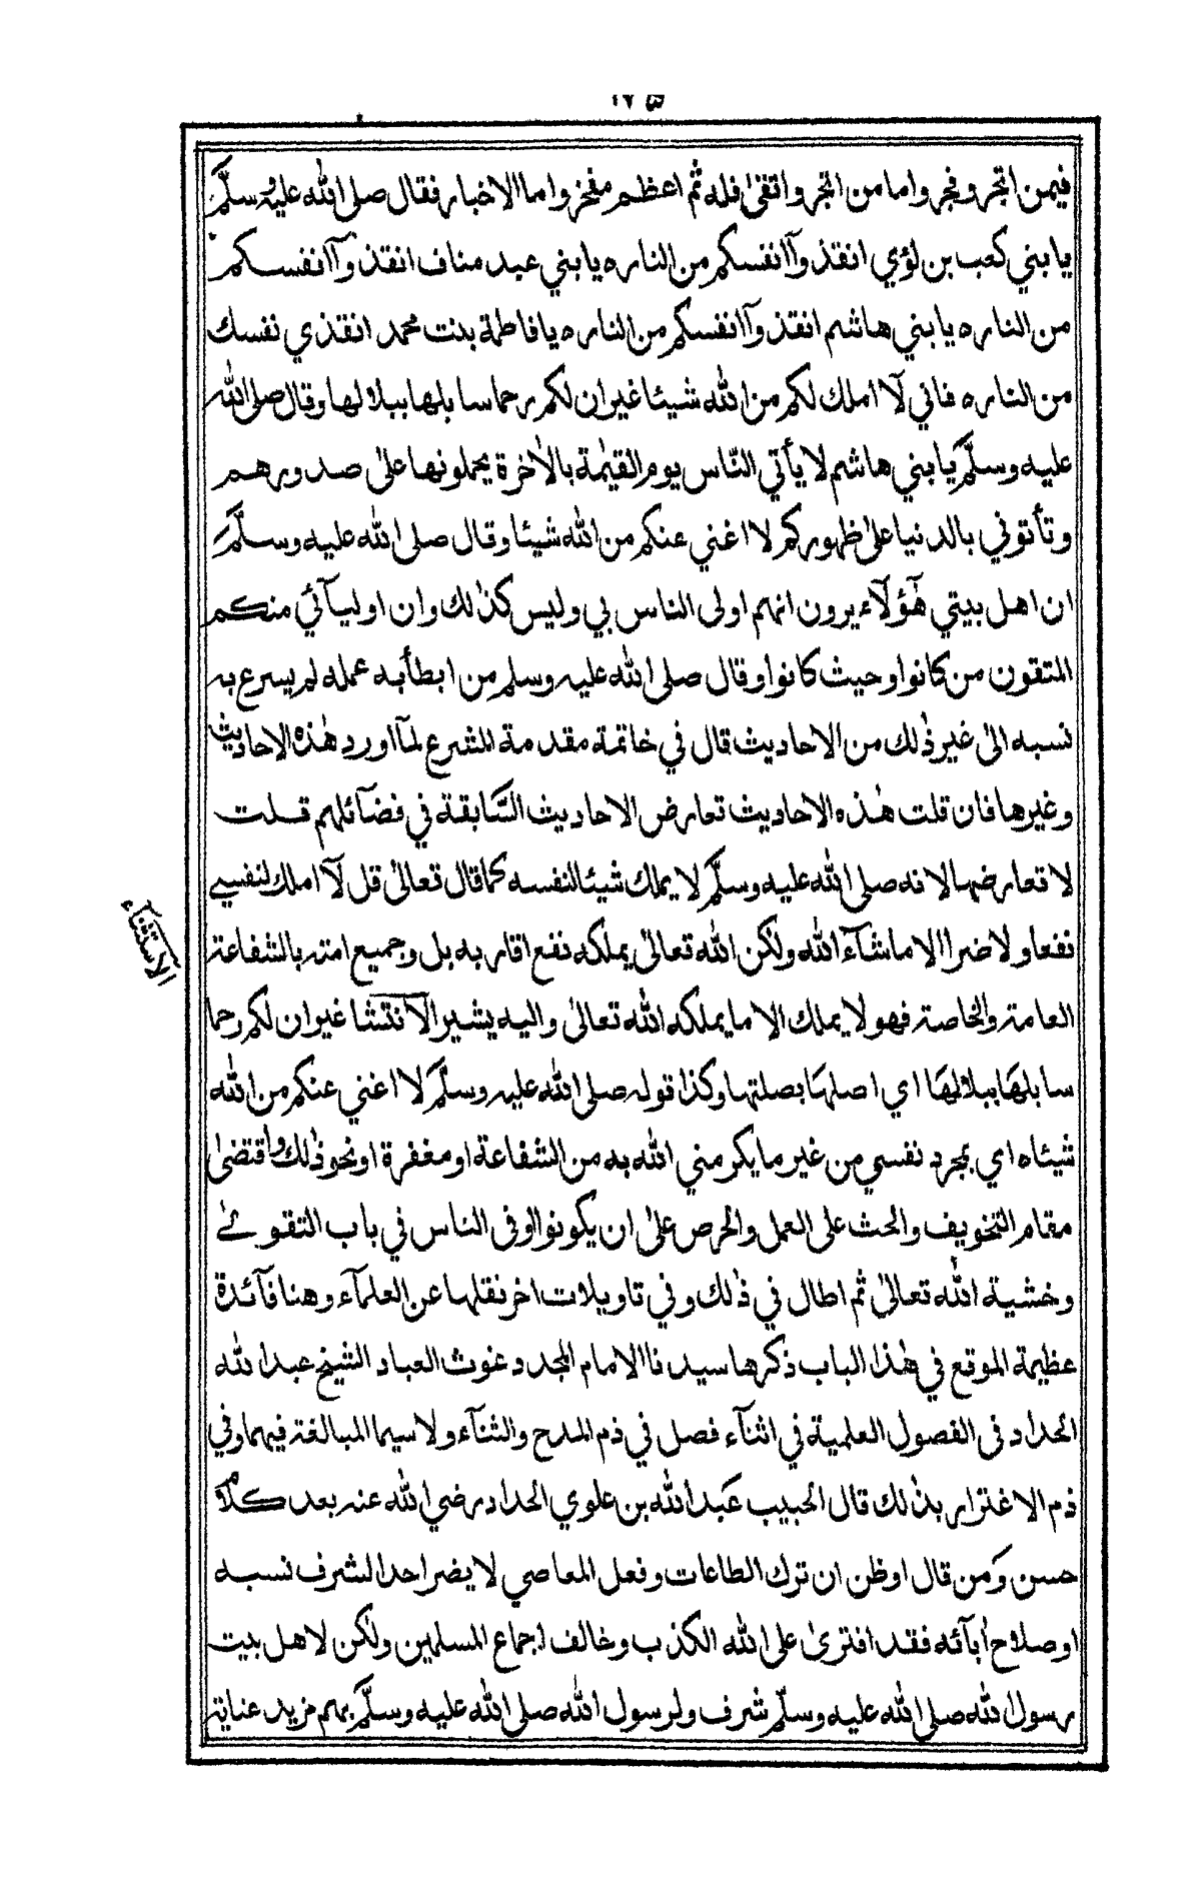 ١٢٥
فيمن اتجر وفجر واما من اتجر واتقى فله ثم اعظم مفخر واما الاخبار فقال صلى الله عليه وسلّم
يا بني كعب بن لؤي انقذوآ انفسكم من الناره يا بني عبد مناف انقذوآ انفسكم
من الناره يا بني هاشم انقذوآ انفسكم من الناره يا فاطمة بنت محمد انقذي نفسك
من الناره فاني لآ املك لكم من الله شيئا غير ان لكم رحما سابلها ببلالها وقال صلى الله
عليه وسلّم يا بني هاشم لا يأتي النّاس يوم القيٰمة بالاٰخرة يحملونها علىٰ صدورهم
وتأتوني بالدنيا علىٰ ظهوركم لا اغني عنكم من الله شيئا وقال صلى الله عليه وسلّم
ان اهل بيتي هٓؤلآء يرون انهم اولى الناس بي وليس كذٰلك وان اوليآئي منكم
المتقون من كانوا وحيث كانوا وقال صلى الله عليه وسلم من ابطأ به عمله لم يسرع به
نسبه الىٰ غير ذٰلك من الاحاديث قال في خاتمة مقدمة المشرع لمآ اورد هٰذه الاحاديث
وغيرها فان قلت هٰذه الاحاديث تعارض الاحاديث السّابقة في فضآئلهم قلت
لا تعارضها لانه صلى الله عليه وسلّم لا يملك شيئا لنفسه كما قال تعالىٰ قل لآ املك لنفسي
نفعا ولا ضرا الا ما شآء الله ولٰكن الله تعالىٰ يملكه نفع اقاربه بل وجميع امته بالشفاعة
العامة والخاصة فهو لا يملك الا ما يملكه الله تعالىٰ واليه يشير الآنتشا غير ان لكم رحما
سابلها ببلالها اي اصلها بصلتها وكذا قوله صلى الله عليه وسلّم لا اغني عنكم من الله
شيئاه اي بمجرد نفسي من غير ما يكرمني الله به من الشفاعة او مغفرة او نحو ذٰلك واقتضىٰ
مقام التخويف والحث على العمل والحرص علىٰ ان يكونوا اوفى الناس في باب التقوىٰ
وخشية الله تعالىٰ ثم اطال في ذٰلك وفي تاويلات اخر نقلها عن العلمآء وهنا فآئدة
عظيمة الموقع في هٰذا الباب ذكرها سيدنا الامام المجدد غوث العباد الشيخ عبد الله
الحداد فى الفصول العلمية في اثنآء فصل في ذم المدح والثنآء ولا سيما المبالغة فيهما وفي
ذم الاغترار بذٰلك قال الحبيب عبد الله بن علوي الحداد رضي الله عنه بعد كلام
حسن ومن قال او ظن ان ترك الطاعات وفعل المعاصي لا يضر احدا لشرف نسبه
او صلاح اٰبآئه فقد افترىٰ على الله الكذب وخالف اجماع المسلمين ولٰكن لاهل بيت
رسول الله صلى الله عليه وسلّم شرف ولرسول الله صلى الله عليه وسلّم بهم مزيد عناية
الاستثناء